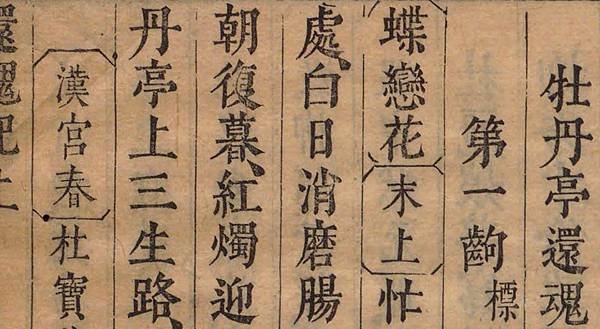 牡丹亭還魂
第一齣 標
蝶戀花 末上 忙
處、白日消磨腸
朝復暮、紅燭迎
丹亭上三生路、
漢宮春 杜寶
還魂記 上